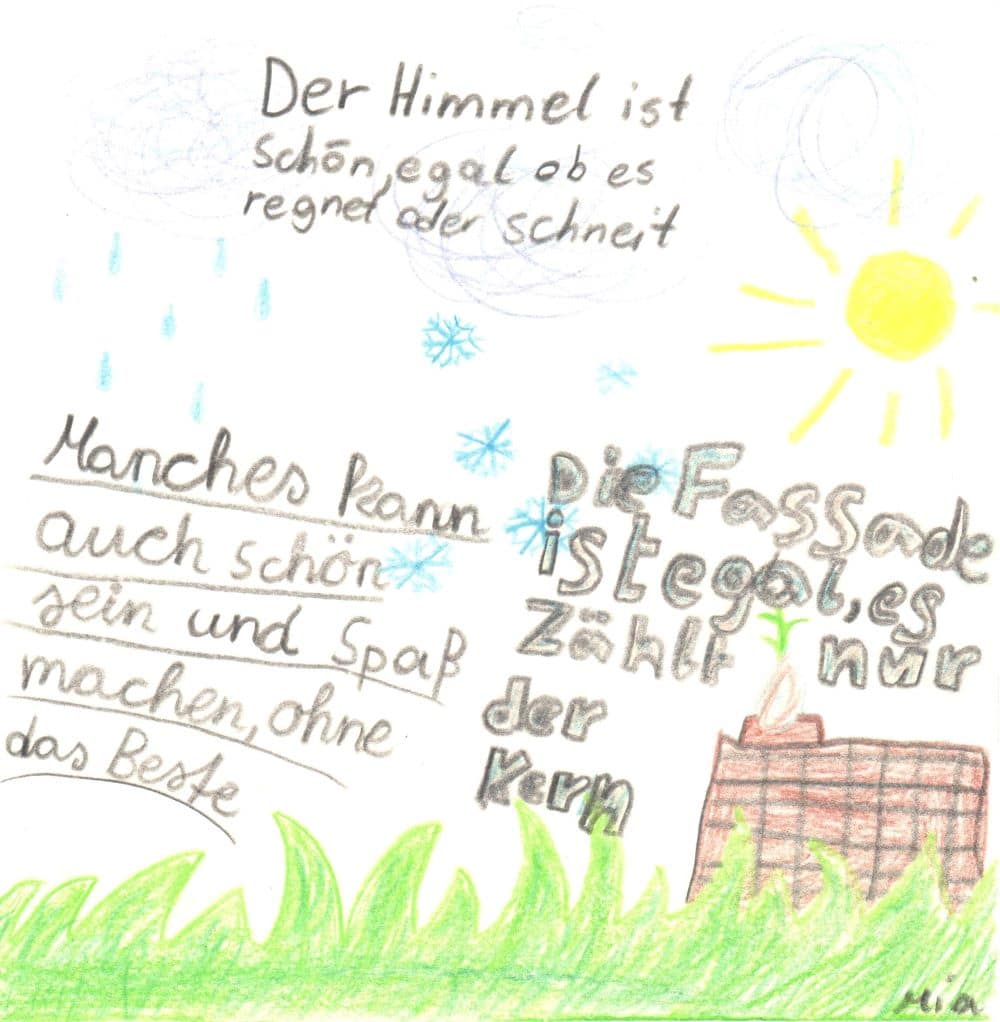 Der Himmel ist
schön, egal ob es
regnet oder schneit
Manches kann
auch schön
sein und Spaß
machen, ohne
das Beste
Die Fassade
ist egal, es
Zählt nur
der
Kern
Mia